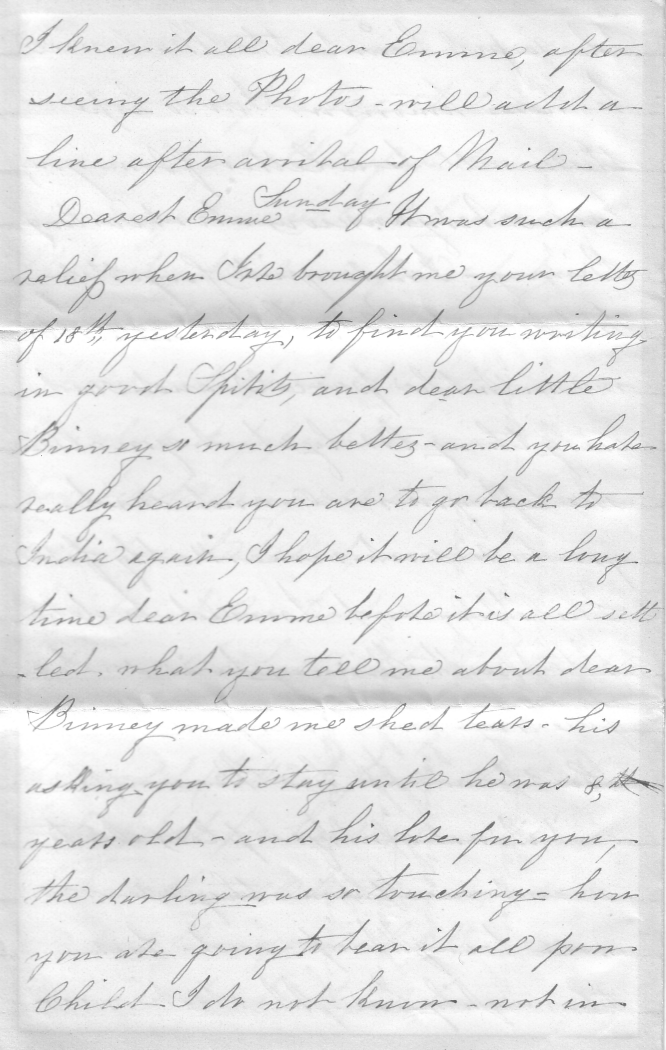 I knew it all dear Emme, after
seeing the Photos - will add a
line after arrival of Mail -
Sunday
Dearest Emme It was such a
relief when brought me your letter
of 18th, yesterday, to find you writing
in good Spirits, and dear little
Binney so much better - and you have
really heard you are to go back to
India again, I hope it will be a long
time dear Emme before it is all sett
-led. what you tell me about dear
Binney made me shed tears - his
asking you to stay until he was 8,
years old - and his love for you,
the darling was so touching - how
you are going to bear it all poor
Child I do not know - not in